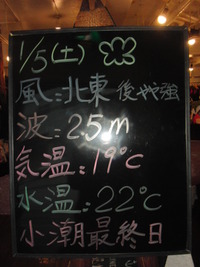 1/5(土)
風:北東 後やや強
波:2.5m
気温:19℃
水温:22℃
小潮最終日